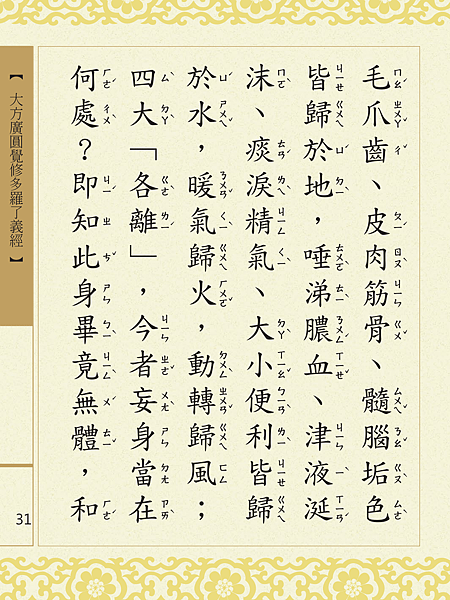 毛爪齒、皮肉筋骨、髓腦垢色
皆歸於地，唾涕膿血、津液涎
沫、痰淚精氣、大小便利皆歸
於水，暖氣歸火，動轉歸風；
四大「各離」，今者妄身當在
何處？即知此身畢竟無體，和
【大方廣圓覺修多羅了義經】
31